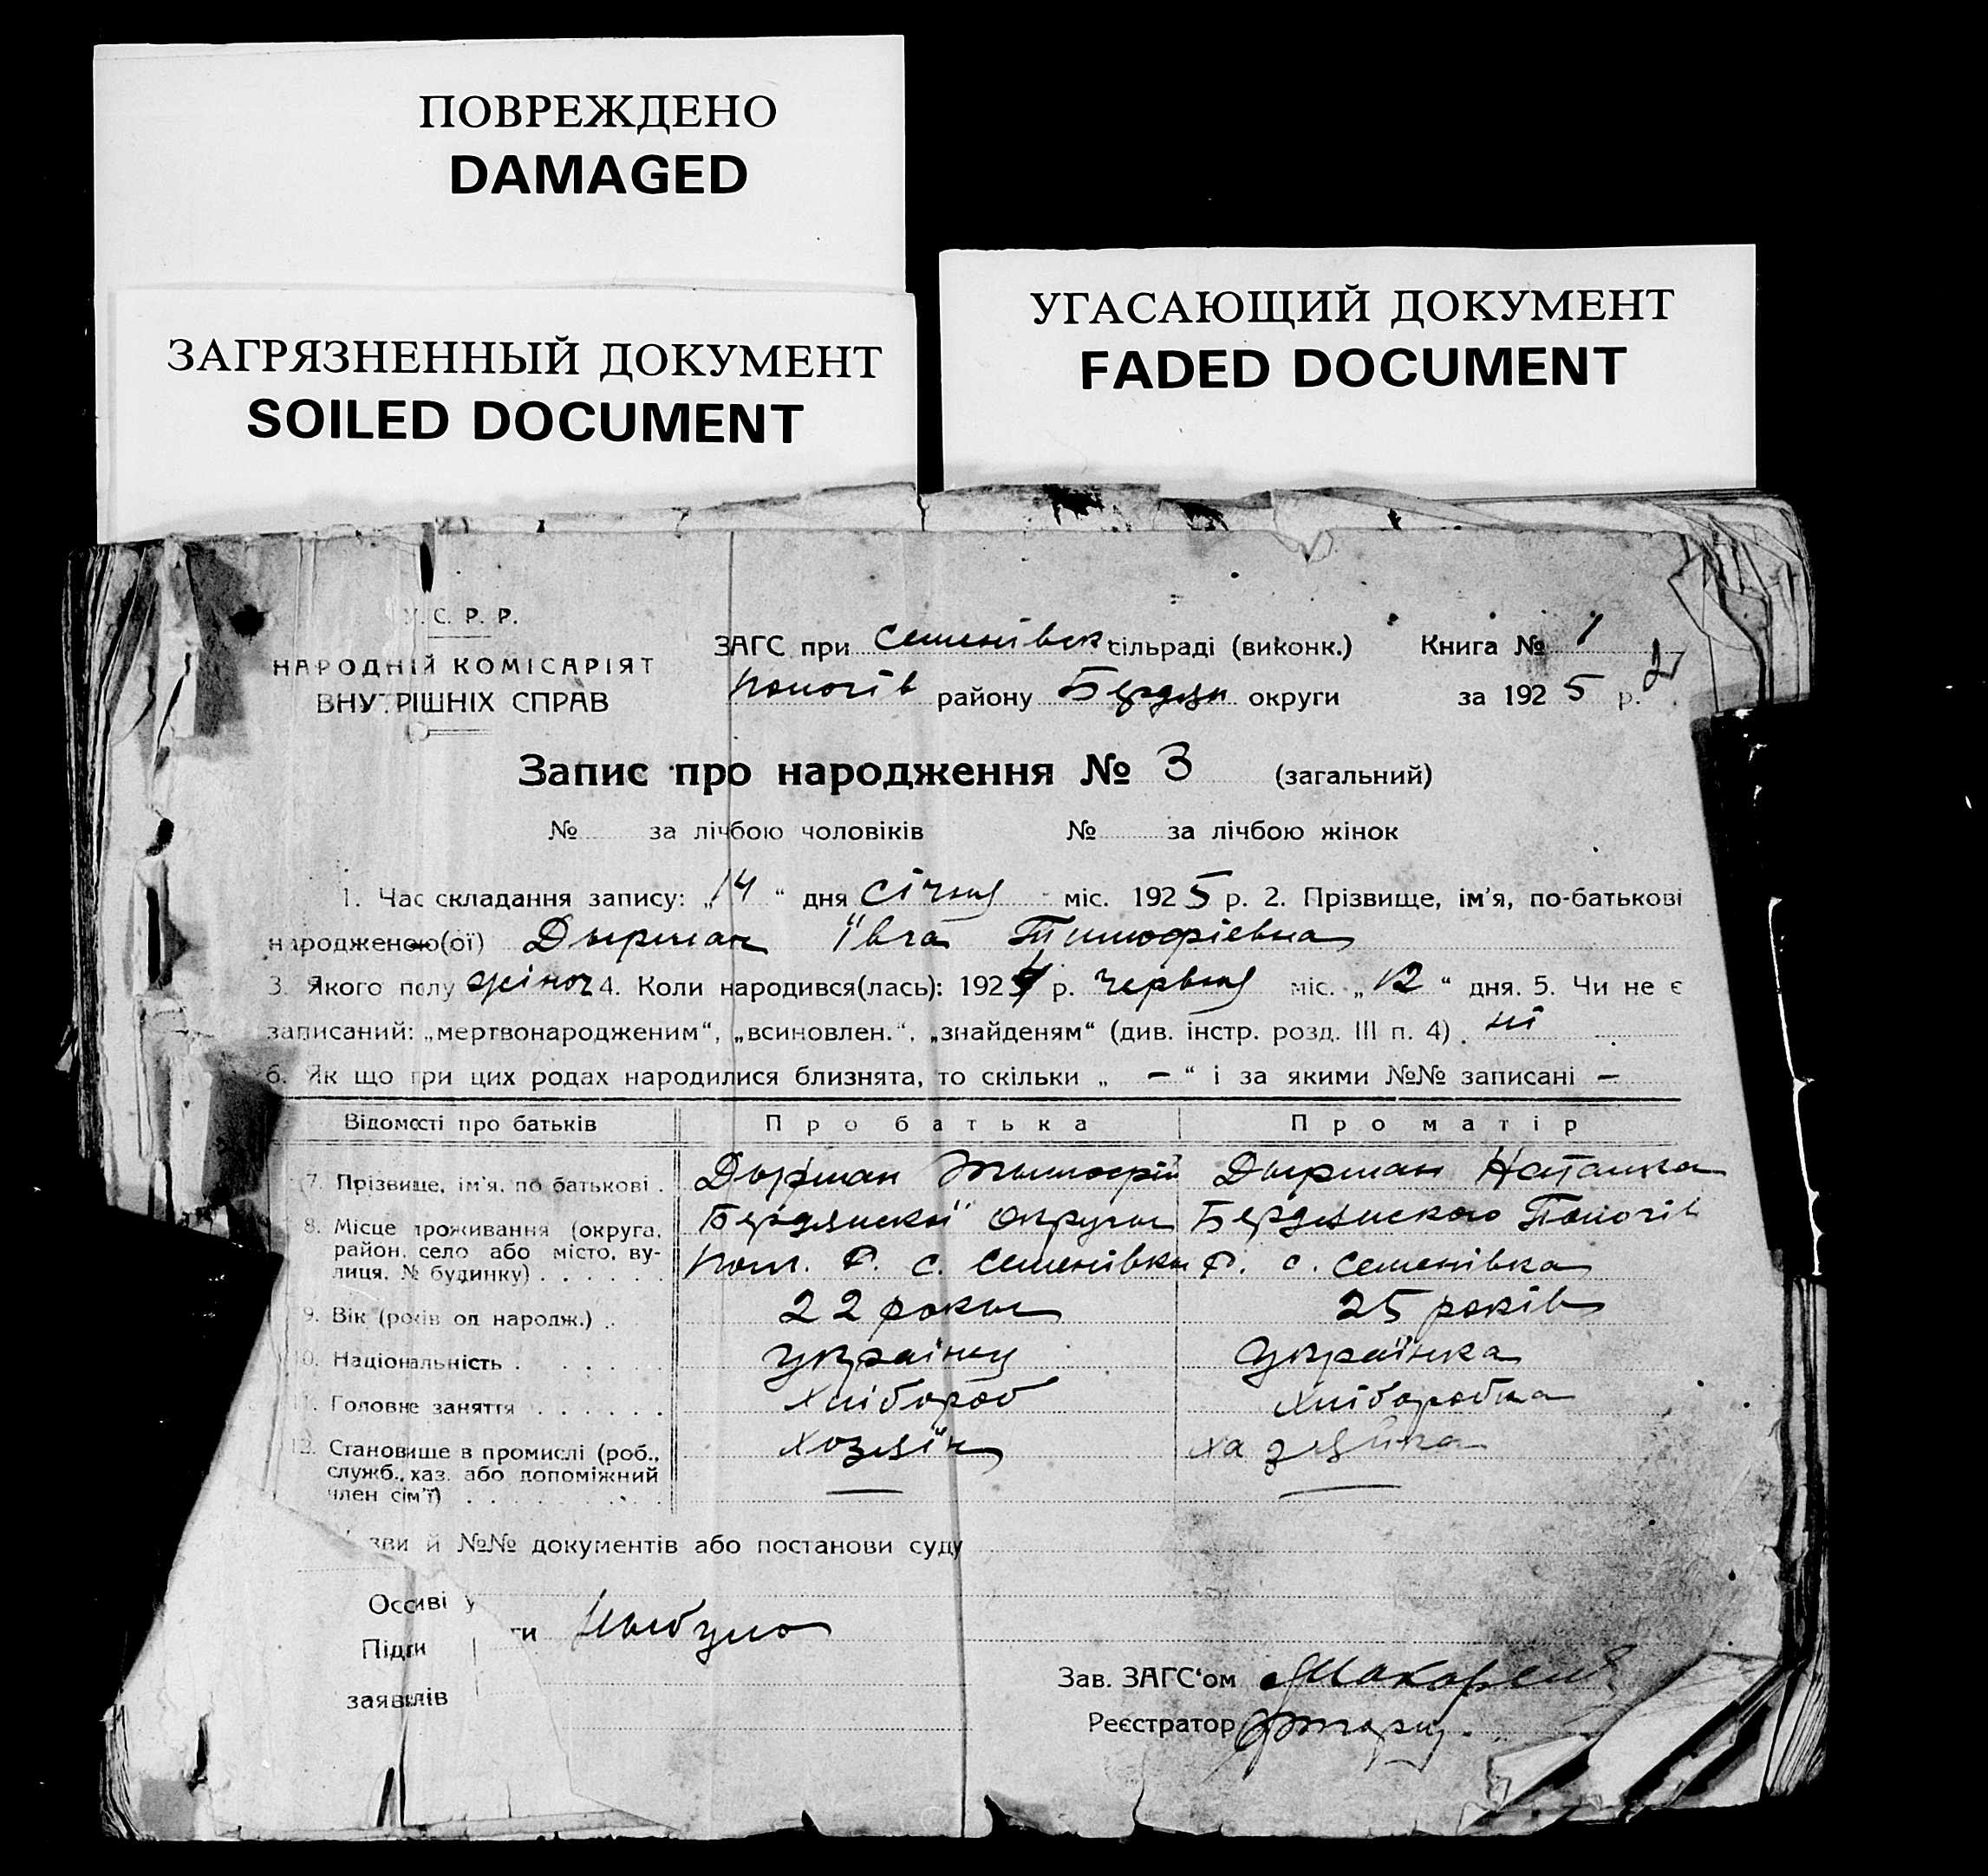 ПОВРЕЖДЕНО
DAMAGED
ЗАГРЯЗНЕННЫЙ ДОКУМЕНТ
SOILED DOCUMENT
УГАСАЮЩИЙ ДОКУМЕНТ
FADED DOCUMENT
У. С. Р. Р.
НАРОДНІЙ КОМІСАРІЯТ
ВНУТРІШНІХ СПРАВ
ЗАГС при Семенівск сільраді (виконк.) Книга № 1
Пологів району Бердян округи за 1925 р.
2
Запис про народження № 3 (загальний)
№ за лічбою чоловіків № за лічбою жінок
1. Час складання запису: „14“ дня січня міс. 1925 р. 2. Прізвище, ім'я, по-батькові
народженого(ої) Дырман Ївга Тимофіевна
3. Якого полу жіноч 4. Коли народився(лась): 1924 р. червня міс. „12“ дня. 5. Чи не є
записаний: „мертвонародженим“, „всиновлен.“, „знайденям“ (див. інстр. розд. III п. 4). ні
6. Як що при цих родах народилися близнята, то скільки „ — “ і за якими №№ записані —
Відомості про батьків Про батька Про матір
7. Прізвище, ім'я, по батькові . Дырман Тымофій Дырман Наталка
8. Місце проживання (округа, район, село або місто, вулиця, № будинку) . . . . . . Бердянскої округы Бердянскою Пологів
Пол. Р. с. Семенівкы Р. с. Семенівка
9. Вік (років од народж.) . . 22 рокы 25 років
10. Національність . . . . . українец українка
11. Головне заняття . . . . . . хлібороб хліборобка
12. Становище в промислі (роб., служб., хаз. або допоміжний член сім'ї) . . . . . . . . . хозяїн хазяйка
— —
зви й №№ документів або постанови суду
Особиві у
Підпи ти Ныбуло
заявілів
Зав. ЗАГС'ом
Реєстратор